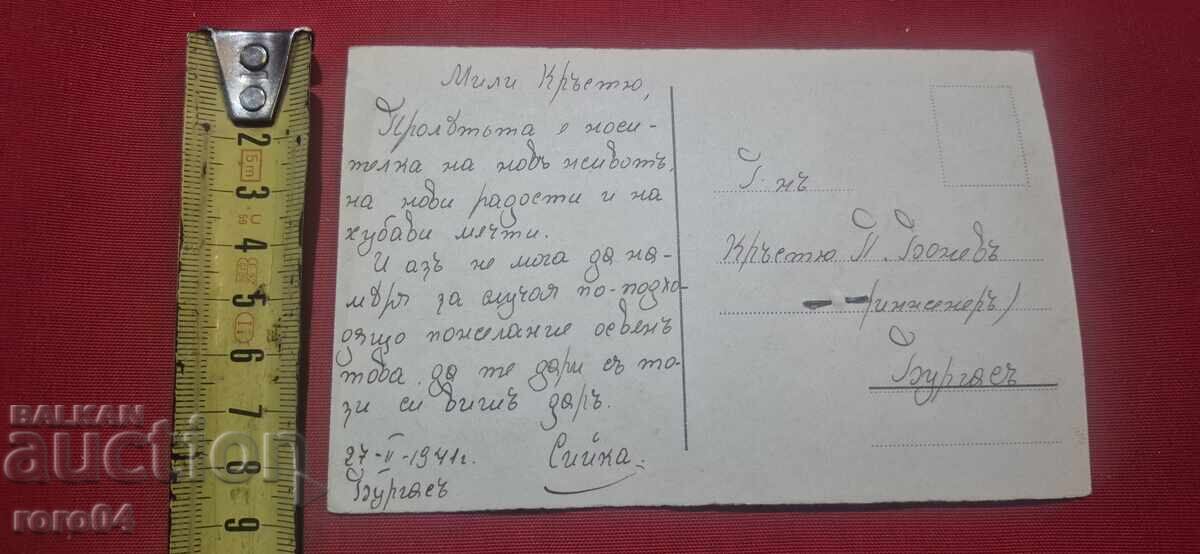 Мили Кръстю,
Пролѣтьта е носи-
телка на новъ животъ,
на нови радости и на
хубави мечти.
И азъ не мога да на-
мѣря за случая по-подхо-
дящо пожелание освенъ
това, да те дари съ то-
зи си даръ.
27-II-1941 г.
Бургасъ
Сийка.
Г. нъ
Кръстю П. Боневъ
(инженеръ)
Бургасъ
2
3
4
5
6
7
8
9
5m
BALKAN
auction
roro04